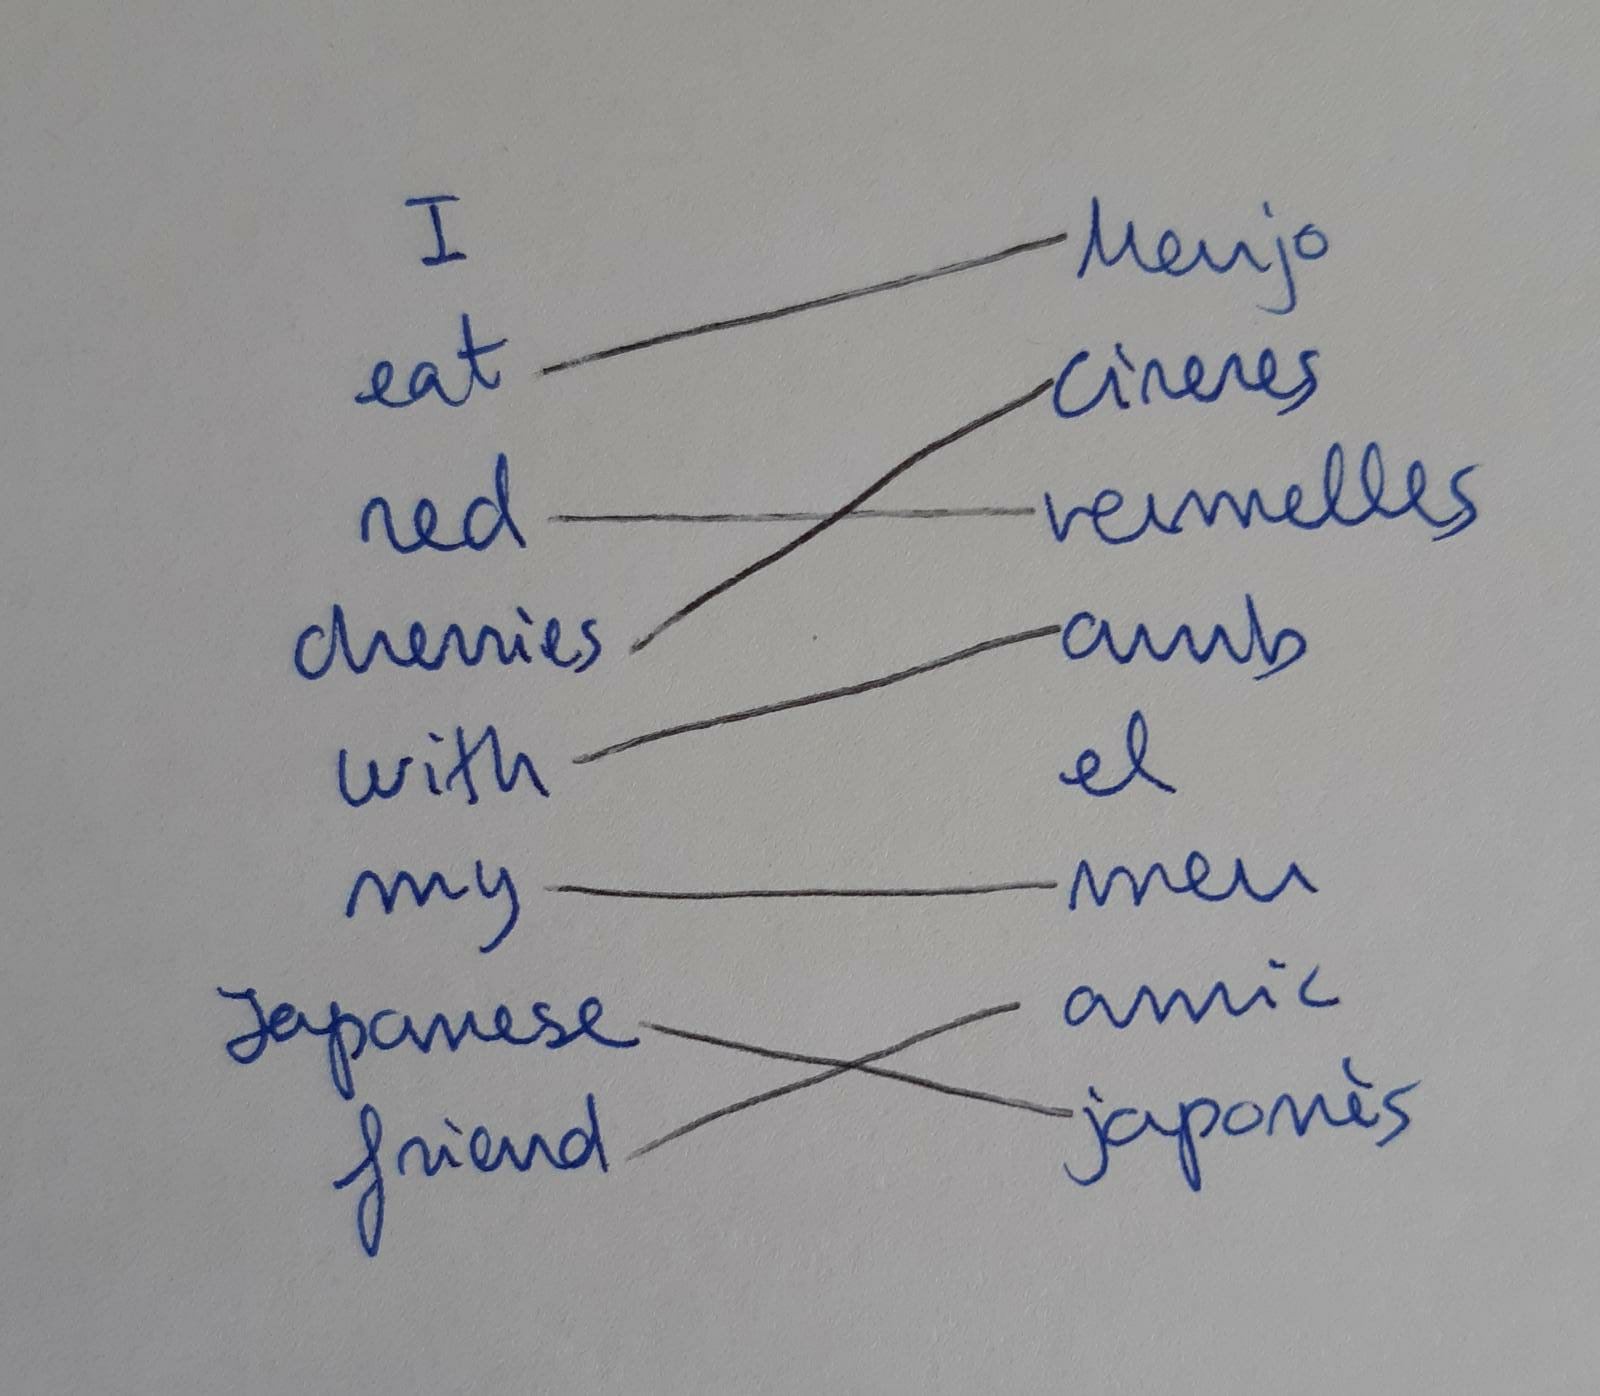 I
eat
red
cherries
with
my
Japanese
friend
Menjo
cireres
vermelles
amb
el
meu
amic
japonès